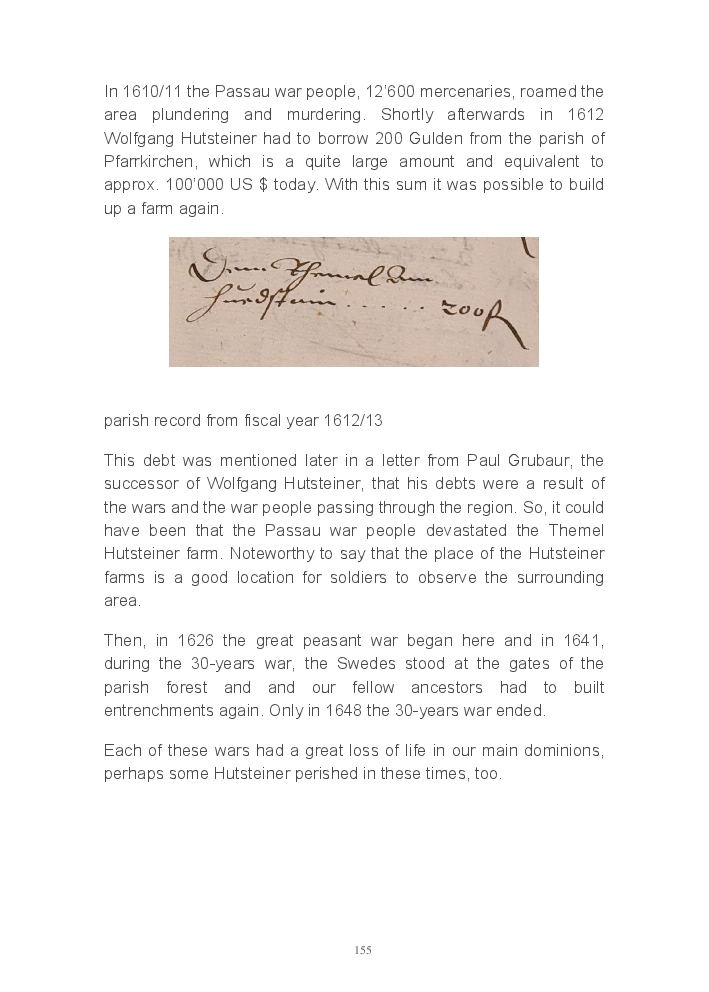 In 1610/11 the Passau war people, 12’600 mercenaries, roamed the
area plundering and murdering. Shortly afterwards in 1612
Wolfgang Hutsteiner had to borrow 200 Gulden from the parish of
Pfarrkirchen, which is a quite large amount and equivalent to
approx. 100’000 US $ today. With this sum it was possible to build
up a farm again.
Dem Themel am
Huedstain . . . . . 200 fl
parish record from fiscal year 1612/13
This debt was mentioned later in a letter from Paul Grubaur, the
successor of Wolfgang Hutsteiner, that his debts were a result of
the wars and the war people passing through the region. So, it could
have been that the Passau war people devastated the Themel
Hutsteiner farm. Noteworthy to say that the place of the Hutsteiner
farms is a good location for soldiers to observe the surrounding
area.
Then, in 1626 the great peasant war began here and in 1641,
during the 30-years war, the Swedes stood at the gates of the
parish forest and and our fellow ancestors had to built
entrenchments again. Only in 1648 the 30-years war ended.
Each of these wars had a great loss of life in our main dominions,
perhaps some Hutsteiner perished in these times, too.
155